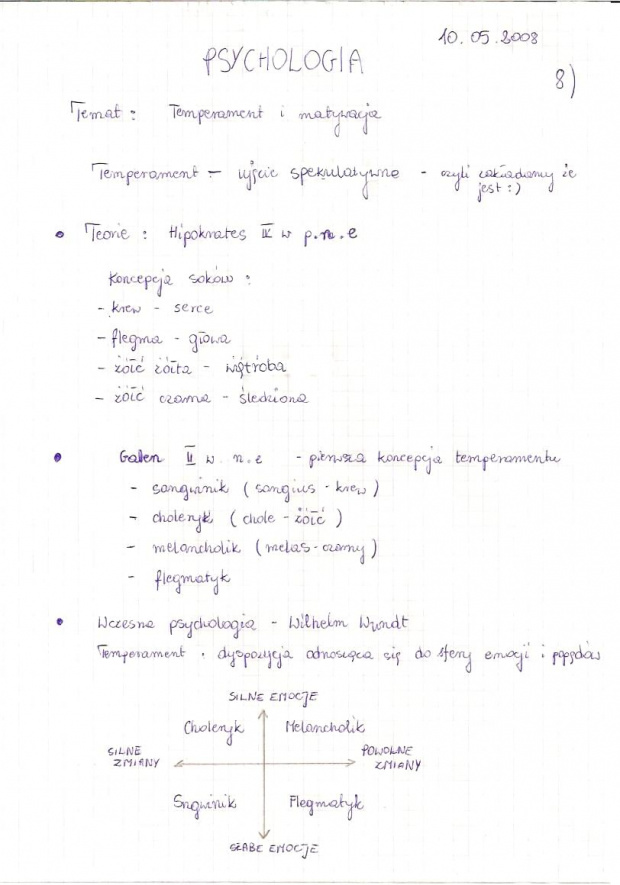 10.05.2008
PSYCHOLOGIA
8)
Temat: Temperament i matywacja
Temperament – ujęcie spekulatywne - czyli zakładamy że
jest :)
• Teorie: Hipokrates IV w p.n.e
Koncepcja soków:
- krew - serce
- flegma - głowa
- żółć żółta - wątroba
- żółć czarna - śledziona
• Galen II w. n.e - pierwsza koncepcja temperamentu
- sangwinik (sangius - krew)
- choleryk (chole - żółć)
- melancholik (melas - czarny)
- flegmatyk
• Wczesna psychologia - Wilhelm Wundt
Temperament . dyspozycja odnosząca się do sfery emocji i popędów
SILNE EMOCJE
Choleryk Melancholik
SILNE POWOLNE
ZMIANY ZMIANY
Sngwinik Flegmatyk
SŁABE EMOCJE